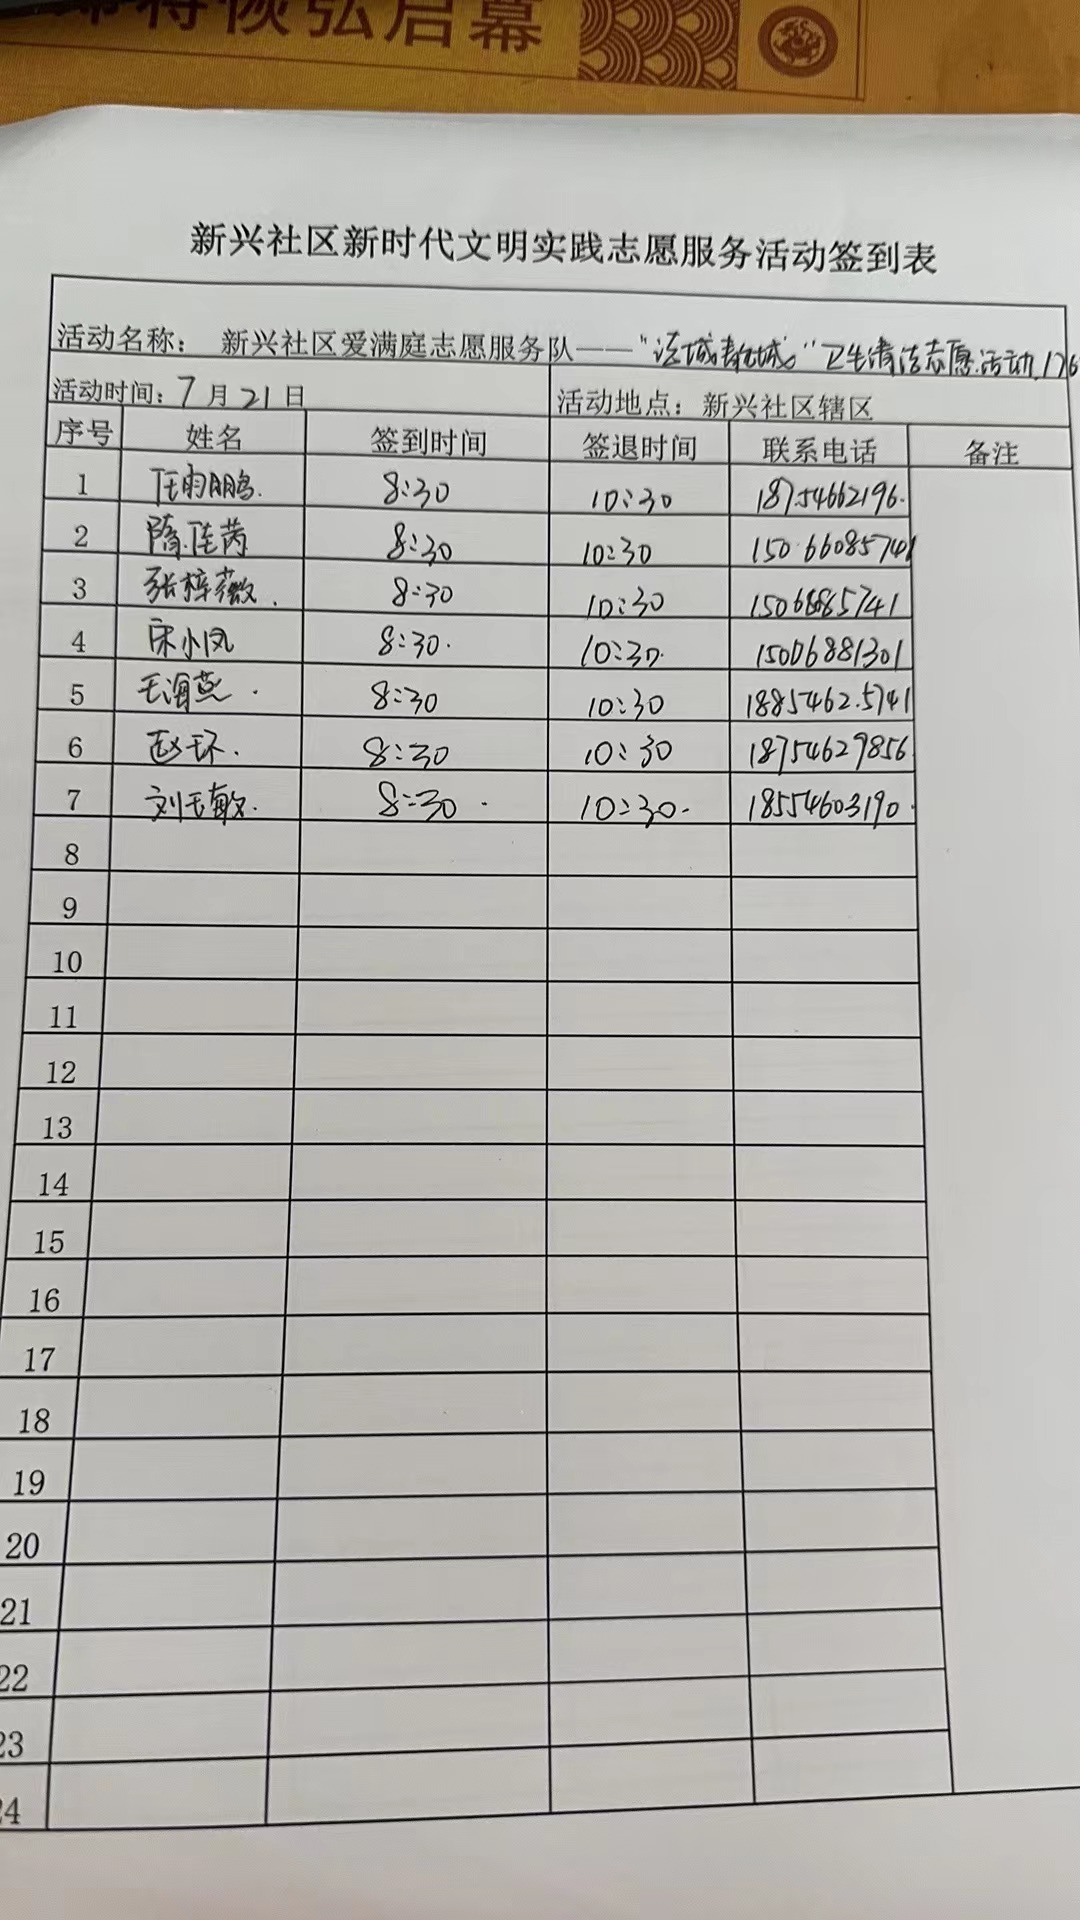 恢弘启幕
新兴社区新时代文明实践志愿服务活动签到表
活动名称： 新兴社区爱满庭志愿服务队——“ ”卫生清洁志愿活动.176
活动时间：7月21日 活动地点：新兴社区辖区
序号 姓名 签到时间 签退时间 联系电话 备注
1 任雨鹏. 8:30 10:30 18754662196.
2 隋佳芮 8:30 10:30
3 张梓薇. 8:30 10:30
4 宋小凤 8:30. 10:30. 15006881301
5 王海燕. 8:30 10:30 1885462.5741
6 赵环. 8:30 10:30 18754629856.
7 刘玉敏. 8:30. 10:30. 18554603190.
8
9
10
11
12
13
14
15
16
17
18
19
20
21
22
23
24